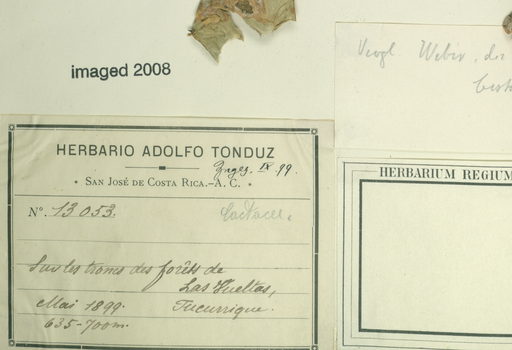 imaged 2008
Vergl. Weber, die
HERBARIO ADOLFO TONDUZ
Zugez. IX. 99.
• SAN JOSÉ DE COSTA RICA.-A. C. •
N°. 13053.
Cactacee.
Sur les troncs des forêts de
Las Vueltas,
Mai 1899. Tucurrique.
635-700m.
HERBARIUM REGIUM